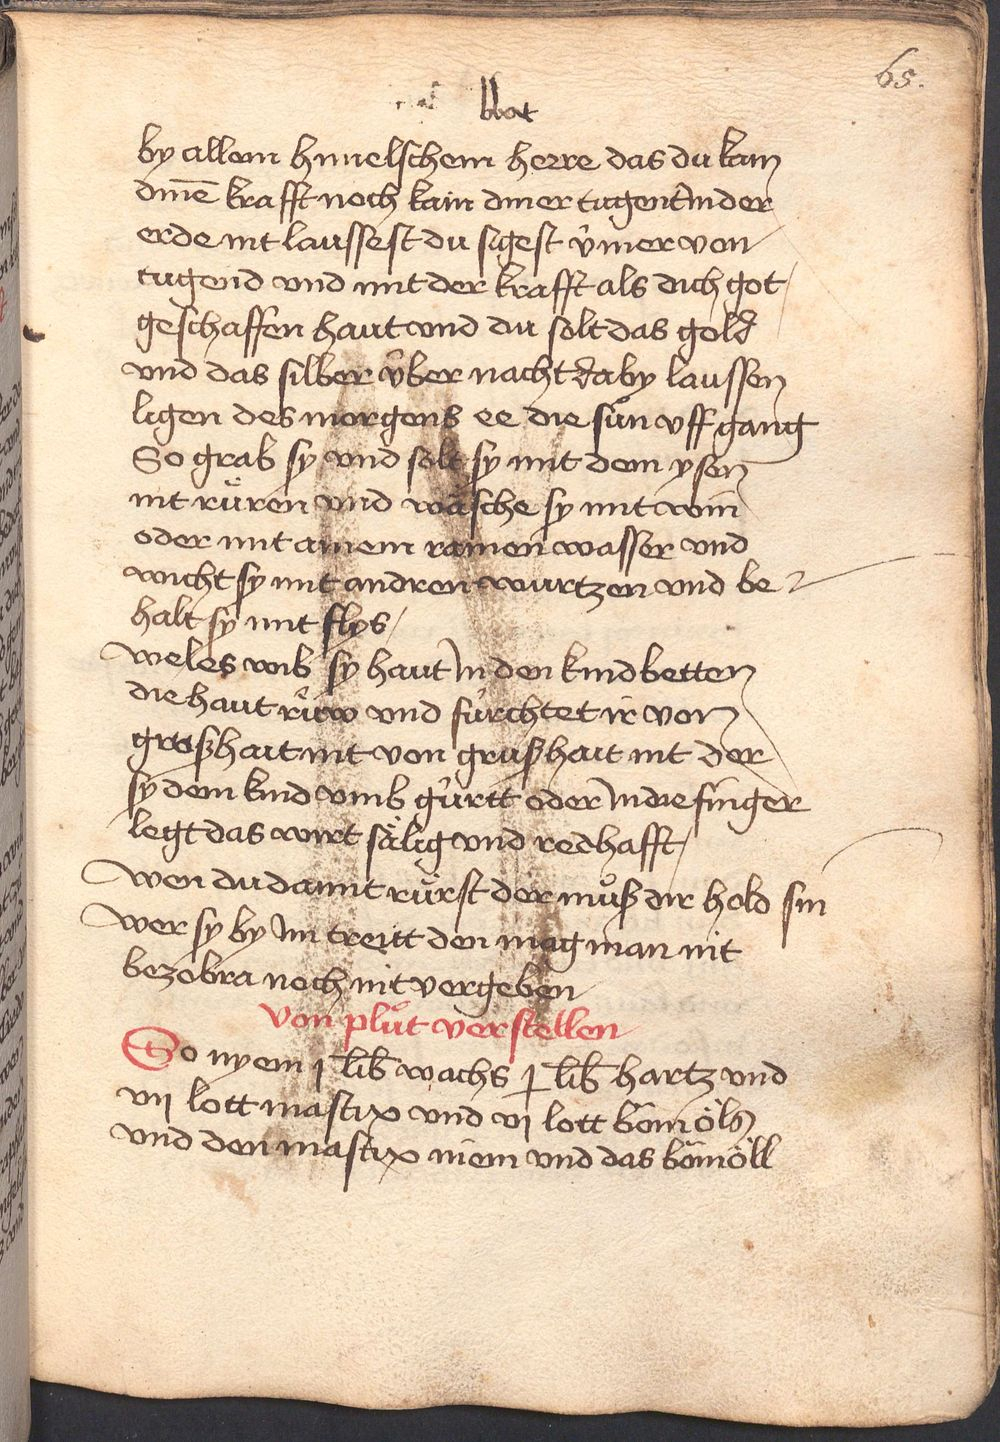 65.
by allem himelschem herre das du kain
dinē krafft noch kain diner tugent In der
erde nit laussest du sigest ŷmer von
tugend vnd mit der krafft als dich got
geschaffen haut vnd du solt das gold
vnd das silber v̊ber nacht daby laussen
ligen des morgens ee die sůn vff gang
So grab sy vnd solt sy mit dem ysen
nit rüren vnd wäsche sy mit win
oder mit ainem rainen wasser vnd
wicht sy mit andren wurtzen vnd be
halt sy mit flys
weles wib sy haut In den kindbetten
die haut růw vnd fürchtet ir von
grosshait nit von grusshait nit der
sy dem kind vmb gürtt oder In die finger
legt das wirt sälig vnd redhafft
wen du damit rürst der můß dir hold sin
wer sy by Im treitt den mag man nit
bezobra noch nit vergeben
von plůt verstellen
So nyem j lib wachs j lib hartz vnd
vij lott mastix vnd vj lott bömöls
vnd den mastix niem vnd das bömöll